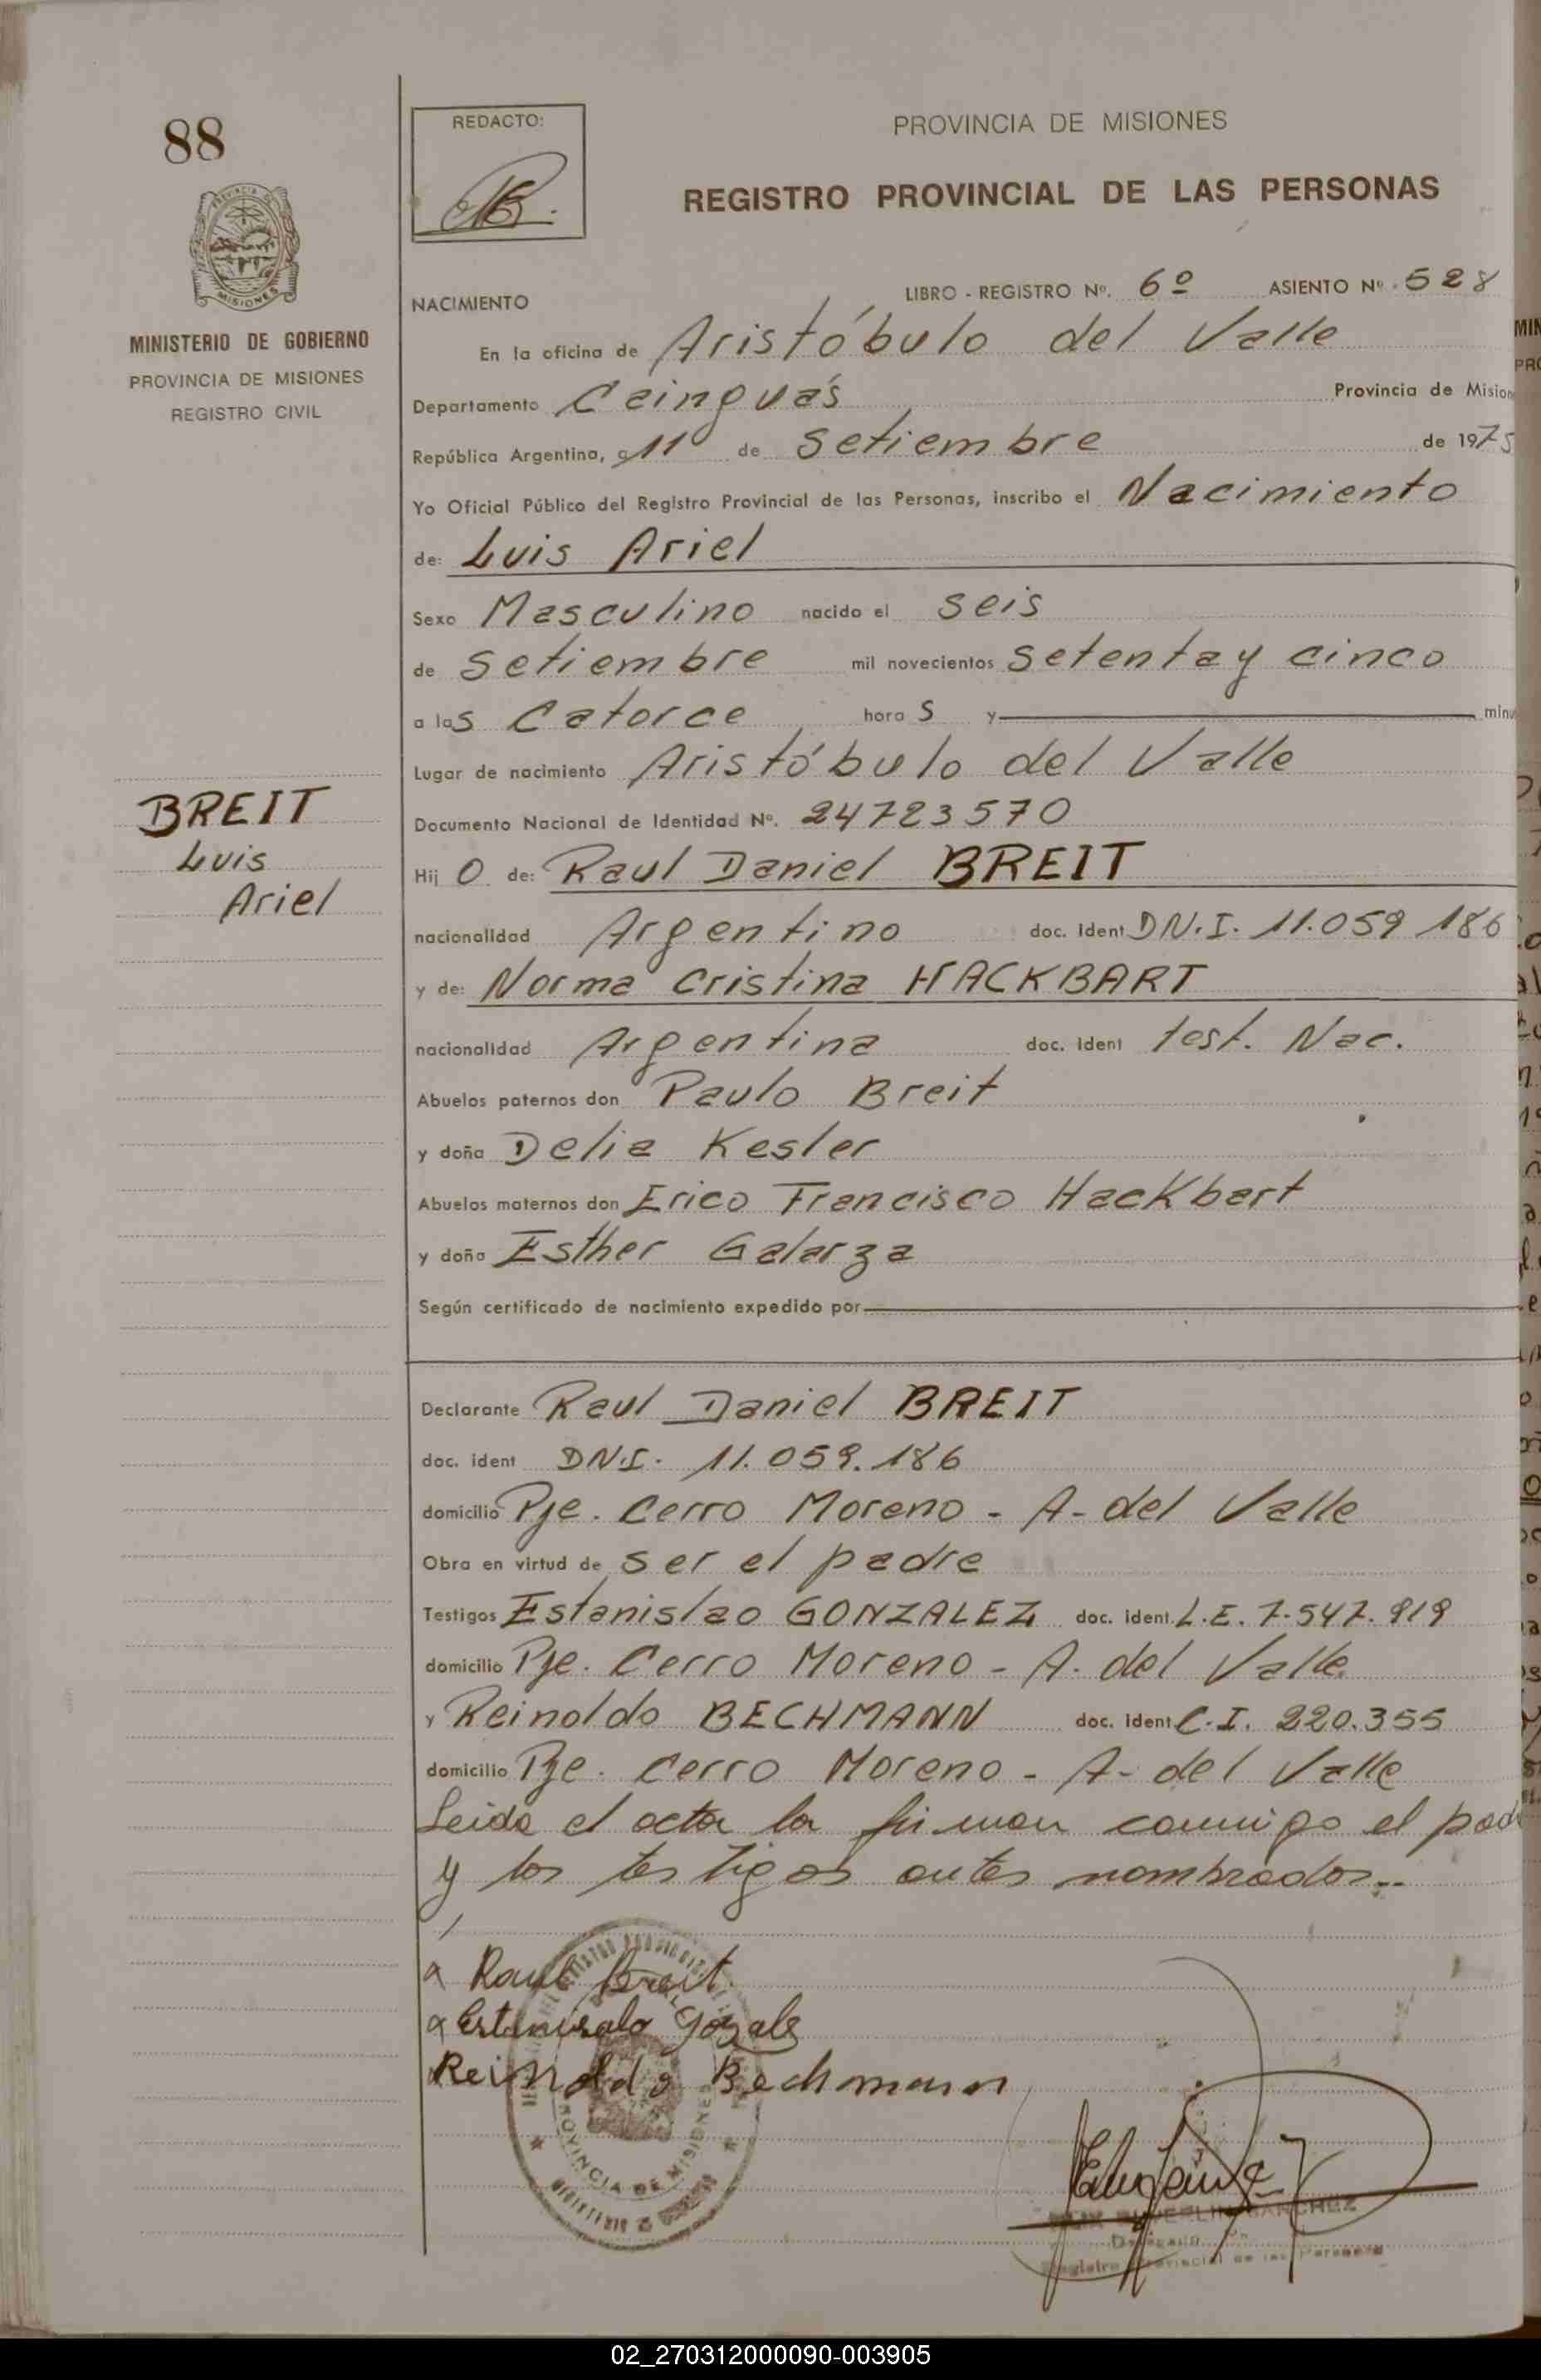 88
REDACTO:
PROVINCIA DE MISIONES
REGISTRO PROVINCIAL DE LAS PERSONAS
MISIONES
MINISTERIO DE GOBIERNO
PROVINCIA DE MISIONES
REGISTRO CIVIL
NACIMIENTO
LIBRO - REGISTRO Nº. 6º ASIENTO Nº 528
En la oficina de Aristóbulo del Valle
Departamento Cainguás Provincia de Mision
República Argentina, a 11 de Setiembre de 1975
Yo Oficial Público del Registro Provincial de las Personas, inscribo el Nacimiento
de: Luis Ariel
Sexo Masculino nacido el seis
de Setiembre mil novecientos setenta y cinco
a las Catorce horas y minu
Lugar de nacimiento Aristóbulo del Valle
Documento Nacional de Identidad Nº. 24723570
BREIT
Luis
Ariel
Hijo de: Raul Daniel BREIT
nacionalidad Argentino doc. Ident D.N.I. 11.059 186
y de: Norma Cristina HACKBART
nacionalidad Argentina doc. Ident test. Nac.
Abuelos paternos don Paulo Breit
y doña Delia Kesler
Abuelos maternos don Erico Francisco Hackbart
y doña Esther Galarza
Según certificado de nacimiento expedido por
Declarante Raul Daniel BREIT
doc. ident D.N.I. 11.059.186
domicilio Pje. Cerro Moreno - A- del Valle
Obra en virtud de ser el padre
Testigos Estanislao GONZALEZ doc. ident. L.E. 7.547.919
domicilio Pje. Cerro Moreno - A. del Valle
y Reinoldo BECHMANN doc. ident C.I. 220.355
domicilio Pje. Cerro Moreno - A- del Valle
Leida el acta la firman conmigo el pad
y los testigos antes nombrados..
Raul Breit
Estanisalo Gozale
Reinoldo Bechmann
PROVINCIA DE MISIONES
SANCHEZ
Registro Provincial de las Personas
02_270312000090-003905